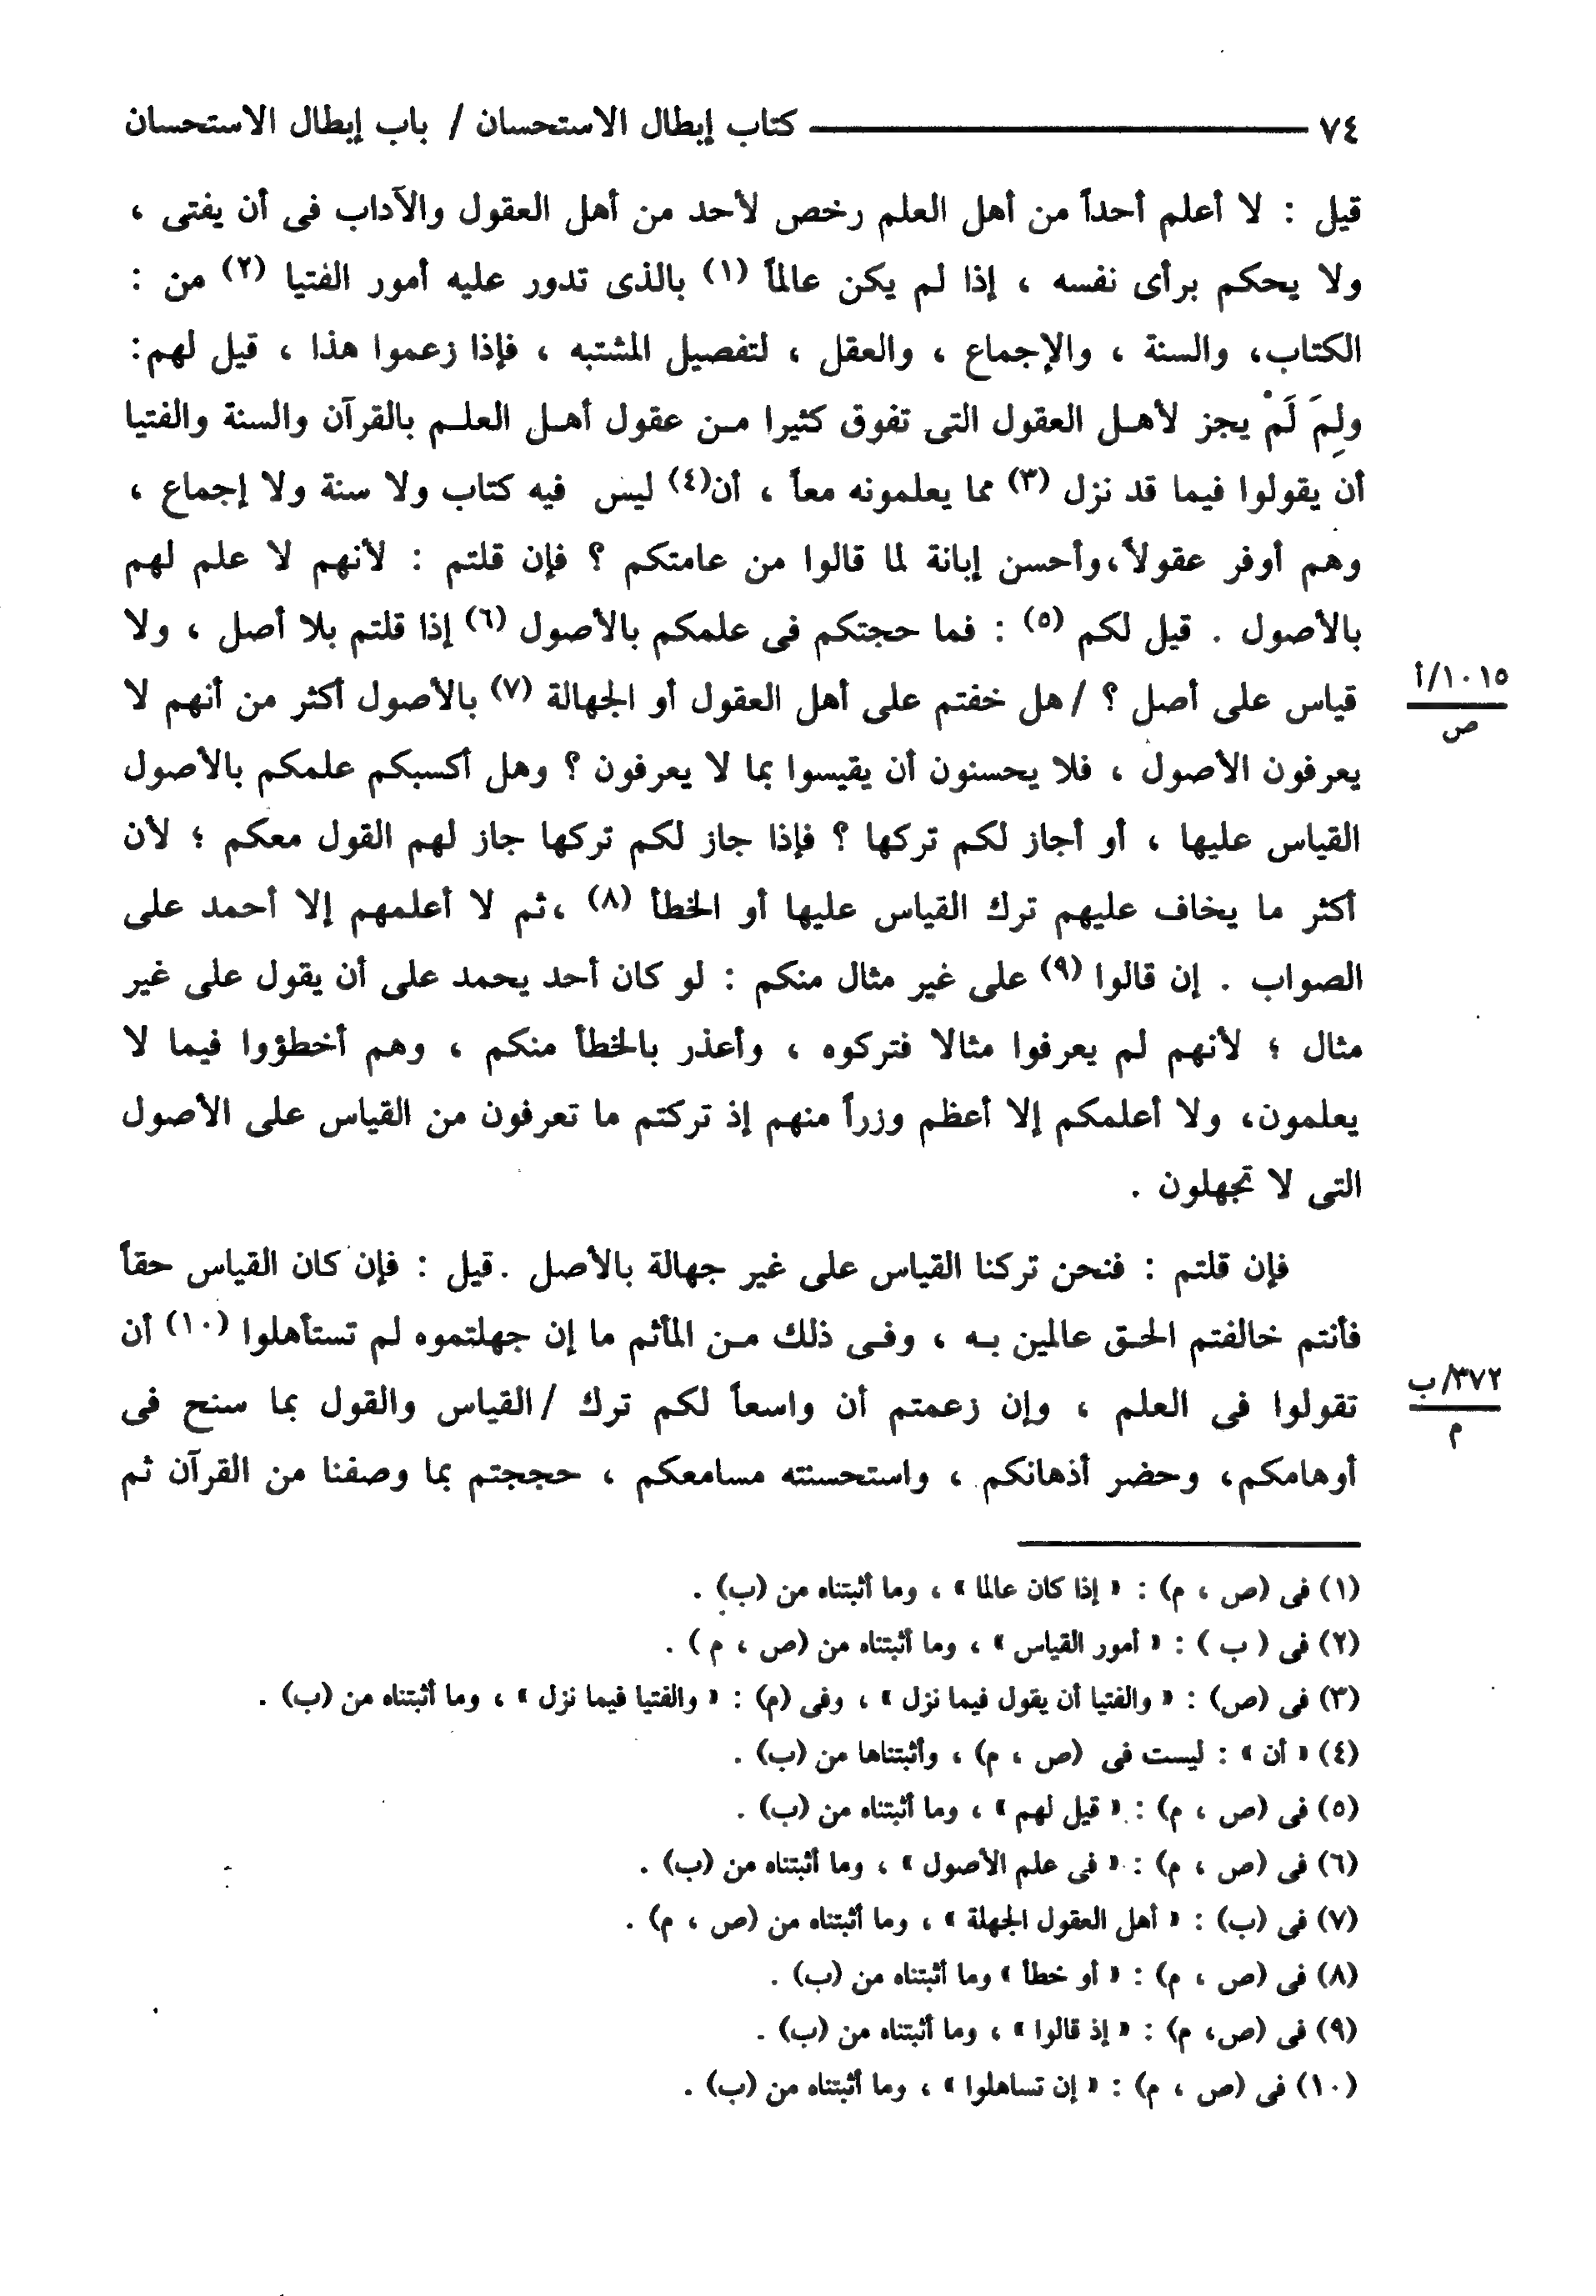 ٧٤ كتاب إبطال الاستحسان / باب إبطال الاستحسان
قيل : لا أعلم أحداً من أهل العلم رخص لأحد من أهل العقول والآداب فى أن يفتى ،
ولا يحكم برأى نفسه ، إذا لم يكن عالماً (١) بالذى تدور عليه أمور الفتيا (٢) من :
الكتاب، والسنة ، والإجماع ، والعقل ، لتفصيل المشتبه ، فإذا زعموا هذا ، قيل لهم:
ولِمَ لَمْ يجز لأهل العقول التى تفوق كثيرا من عقول أهل العلم بالقرآن والسنة والفتيا
أن يقولوا فيما قد نزل (٣) مما يعلمونه معاً ، أن(٤) ليس فيه كتاب ولا سنة ولا إجماع ،
وهم أوفر عقولاً،وأحسن إبانة لما قالوا من عامتكم ؟ فإن قلتم : لأنهم لا علم لهم
بالأصول . قيل لكم (٥) : فما حجتكم فى علمكم بالأصول (٦) إذا قلتم بلا أصل ، ولا
قياس على أصل ؟ / هل خفتم على أهل العقول أو الجهالة (٧) بالأصول أكثر من أنهم لا
١٠١٥/أ
ص
يعرفون الأصول ، فلا يحسنون أن يقيسوا بما لا يعرفون ؟ وهل أكسبكم علمكم بالأصول
القياس عليها ، أو أجاز لكم تركها ؟ فإذا جاز لكم تركها جاز لهم القول معكم ؛ لأن
أكثر ما يخاف عليهم ترك القياس عليها أو الخطأ (٨) ،ثم لا أعلمهم إلا أحمد على
الصواب . إن قالوا (٩) على غير مثال منكم : لو كان أحد يحمد على أن يقول على غير
مثال ؛ لأنهم لم يعرفوا مثالا فتركوه ، وأعذر بالخطأ منكم ، وهم أخطؤوا فيما لا
يعلمون، ولا أعلمكم إلا أعظم وزراً منهم إذ تركتم ما تعرفون من القياس على الأصول
التى لا تجهلون .
فإن قلتم : فنحن تركنا القياس على غير جهالة بالأصل .قيل : فإن كان القياس حقاً
فأنتم خالفتم الحق عالمين به ، وفى ذلك من المأثم ما إن جهلتموه لم تستأهلوا (١٠) أن
تقولوا فى العلم ، وإن زعمتم أن واسعاً لكم ترك /القياس والقول بما سنح فى
٣٧٢/ب
م
أوهامكم، وحضر أذهانكم ، واستحسنته مسامعكم ، حججتم بما وصفنا من القرآن ثم
(١) فى (ص ، م) : « إذا كان عالما » ، وما أثبتناه من (ب) .
(٢) فى ( ب ) : « أمور القياس » ، وما أثبتناه من (ص ، م ) .
(٣) فى (ص) : « والفتيا أن يقول فيما نزل » ، وفى (م) : « والفتيا فيما نزل » ، وما أثبتناه من (ب) .
(٤) « أن » : ليست فى (ص ، م) ، وأثبتناها من (ب) .
(٥) فى (ص ، م) : « قيل لهم » ، وما أثبتناه من (ب) .
(٦) فى (ص ، م) : « فى علم الأصول » ، وما أثبتناه من (ب) .
(٧) فى (ب) : « أهل العقول الجهلة » ، وما أثبتناه من (ص ، م) .
(٨) فى (ص ، م) : « أو خطأ » وما أثبتناه من (ب) .
(٩) فى (ص، م) : « إذ قالوا » ، وما أثبتناه من (ب) .
(١٠) فى (ص ، م) : « إن تساهلوا » ، وما أثبتناه من (ب) .